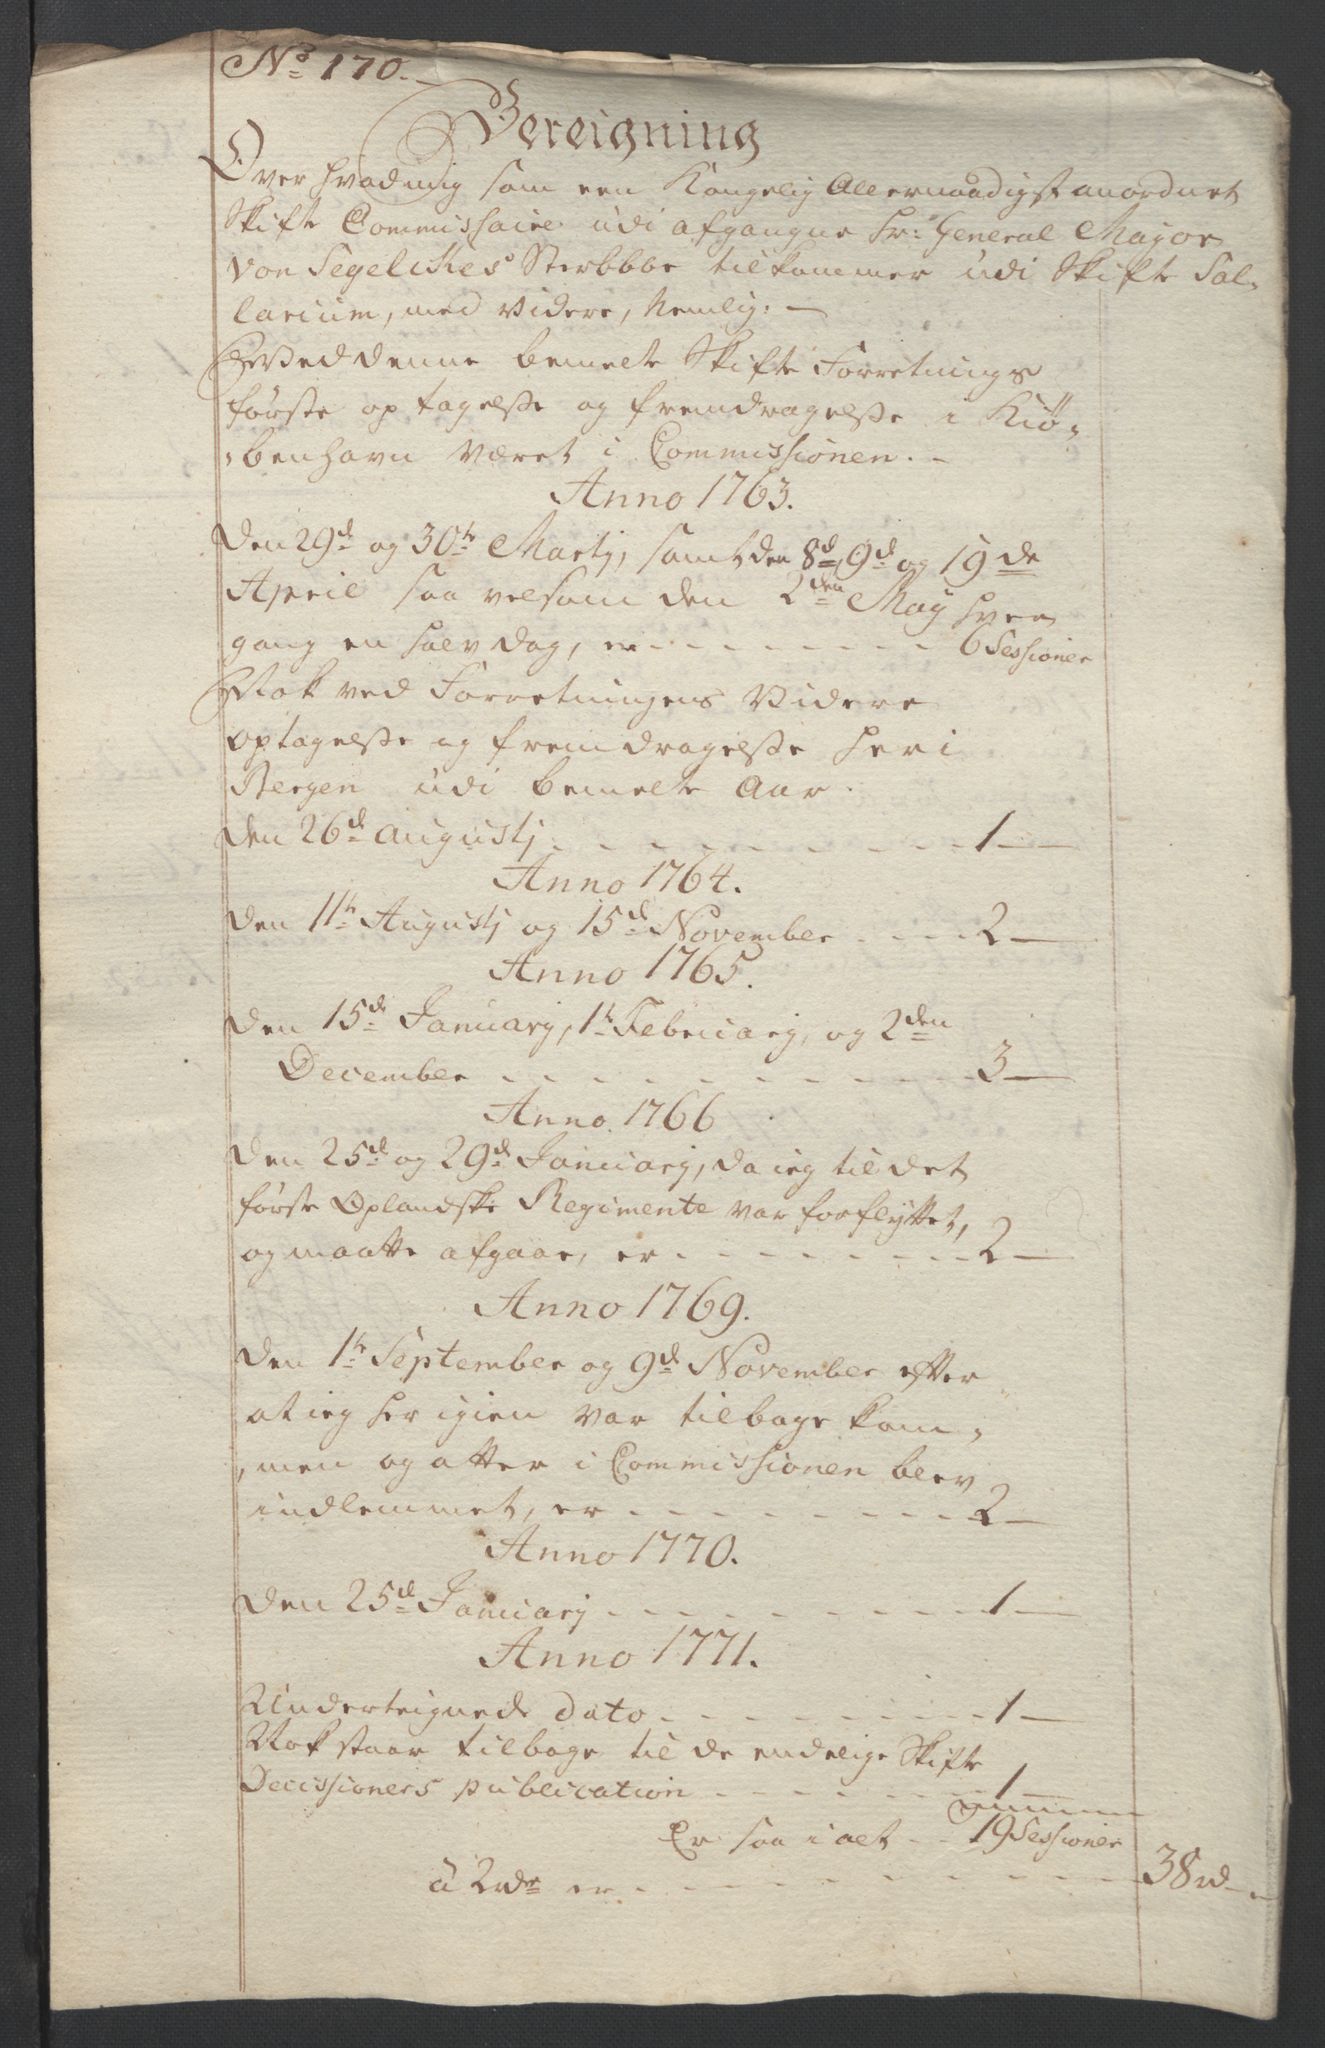 No 170.
Bereigning
Over hvad mig som een Kongelig Allernaadigst anordnet
Skifte Commissaire udi afgangne Hr: General Major
von Segelckes Sterbboe tilkommer udi Skifte Sal-
larium, med videre, Nemlig: —
Ved denne bemelte Skifte Forretnings
første optagelsse og fremdragelsse i Kiø-
-benhavn været i Commissionen. -
Anno 1763.
Den 29de og 30te Martj, samt den 8de, 9de og 19de
April saa velsom den 2den May hver
gang en halv dag, er - - - 6 Sessioner
Nok ved Forretningens videre
optagelsse og fremdragelsse her i
Bergen udi bemelte Aar.
Den 26de Augustj - - - 1 —
Anno 1764.
Den 11te Augustj og 15de November - - - 2 —
Anno 1765.
Den 15de Januarj, 1te Februarj, og 2den
December - - - 3 —
Anno 1766
Den 25de og 29de Januarj, da ieg til det
første Oplandske Regimente var forflyttet,
og maatte afgaae, er - - - 2 —
Anno 1769.
Den 1te September og 9de November efter
at ieg her igien var tilbage kom-
-men og atter i Commissionen blev
indlemmet, er - - - 2 —
Anno 1770.
Den 25de Januarj - - - 1 —
Anno 1771.
Underteignede dato - - - 1 —
Nok staar tilbage til de endelige Skifte
Decissioners publication - - - 1 —
Er saa i alt - - 19 Sessioner
à 2 rdr er - - - 38 rd - -